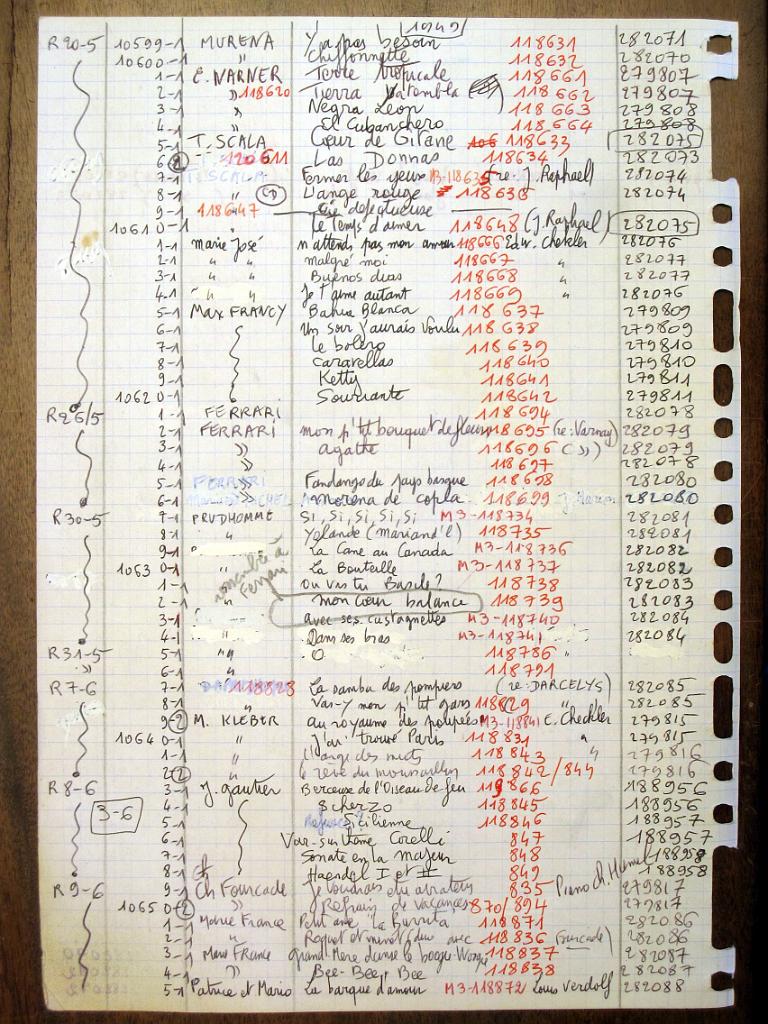 1949
R 20-5 10599-1 MURENA Y a pas besoin 118631 282071
10600-1 " Chiffonnette 118632 282070
1-1 E. WARNER Terre tropicale 118661 279807
2-1 " 118620 Tierra 118662 279807
3-1 Negra Leon 118663 279808
4-1 El Cubanchero 118664 279808
5-1 T. SCALA Cœur de Gitane 118633 282075
6 2 120611 Las Donnas 118634 282073
7-1 T. SCALA Fermer les yeux M3-118635 (re: J. Raphael) 282074
8-1 L'ange rouge 118636 282074
9-1 118647 cie defectueuse
10610-1 Le Temps d'aimer 118648 (J. Raphael) 282075
1-1 Marie José n'attends pas mon amour 118666 Edw. Chekler 282076
2-1 " " malgré moi 118667 " 282077
3-1 " " Buenos dias 118668 282077
4-1 " " Je t'aime autant 118669 " 282076
5-1 Max FRANCY Bahia Blanca 118637 279809
6-1 Un soir j'aurais voulu 118638 279809
7-1 Le bolero 118639 279810
8-1 Caravellas 118640 279810
9-1 Ketty 118641 279811
10620-1 Souriante 118642 279811
R 26/5 1-1 FERRARI 118694 282078
2-1 FERRARI mon p'tit bouquet de fleurs 118695 (re: Varnay) 282079
3-1 " agathe 118696 (") 282079
4-1 " 118697 282078
5-1 FERRARI Fandango du pays basque 118698 282080
6-1 " morena de copla 118699 282080
R 30-5 7-1 PRUDHOMME Si, Si, Si, Si, Si M3-118734 282081
8-1 " Yolande (mariand'l) 118735 282081
9-1 La Cane au Canada M3-118736 282082
10630-1 " La Bouteille M3-118737 282082
1-1 Où vas tu Basile? 118738 282083
2-1 " mon cœur balance 118739 282083
3-1 avec ses castagnettes M3-118740 282084
4-1 " Dans ses bras M3-118741 282084
R 31-5 5-1 " O 118786
" 6-1 " 118791
R 7-6 7-1 118828 La samba des pompiers (re-DARCELYS) 282085
8-1 " Vas-y mon p'tit gars 118829 " 282085
9-2 M. KLEBER au royaume des poupées M3-118841 E. Checkler 279815
10640-1 " J'ai trouvé Paris 118831 " 279815
1-1 " L'ange des nuits 118843 " 279816
2 2 " Le rêve du 118842/844 279816
R 8-6 3-1 J. gautier Berceuse de l'Oiseau de feu 118866 188956
3-6 4-1 Scherzo 118845 188956
5-1 Sicilienne 118846 188957
6-1 Var-sur thème Corelli 847 188957
7-1 Sonate en la Majeur 848 188958
8-1 Haendel I et II 849 188958
R 9-6 9-1 Ch Fourcade Je voudrais etre 835 Piano 279817
10650-2 " Refrain de Vacances 870/894 279817
1-1 Marie France Petit ane la Burrita 118871 282086
2-1 " Roquet et minet (duo avec 118836 Fourcade) 282086
3-1 Marie France Grand Mère danse le boogie Woogie 118837 282087
4-1 " Bee-Bee, Bee 118838 282087
5-1 Patrice et Mario La barque d'amour M3-118872 Louis Verdolf 282088